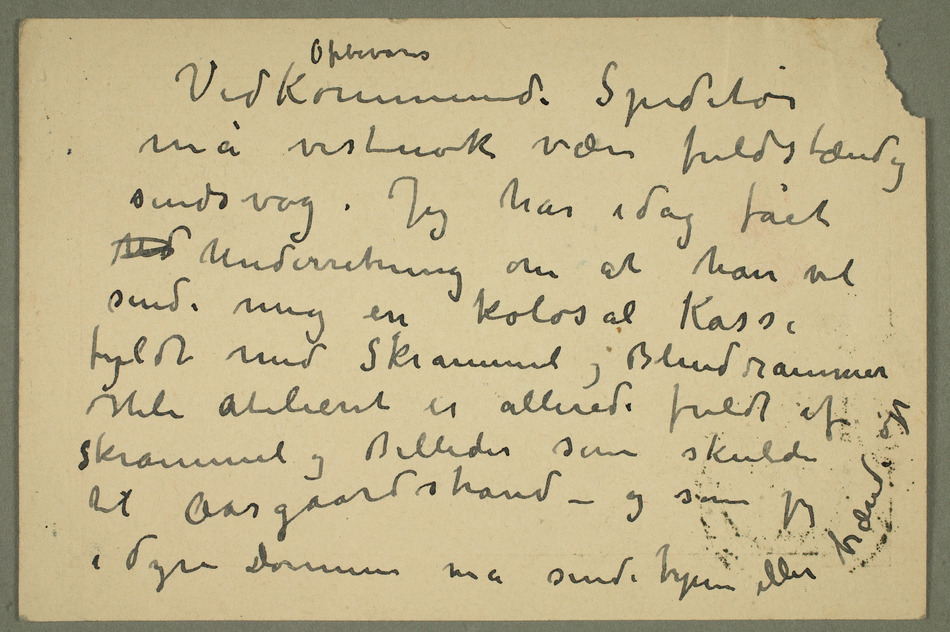 Opbevares
Vedkommende Speditør
må vistnok være fuldstændig
sindsvag. Jeg har idag fået
Underretning om at han vil
sende mig en kolosal Kasse
fyldt med Skrammel og Blendrammer
Hele atelieret er allerede fuldt af
skrammel og Billeder som skulde
til Aasgaardstrand – og som jeg
i dyre Domme må sende hjem eller
brænde op